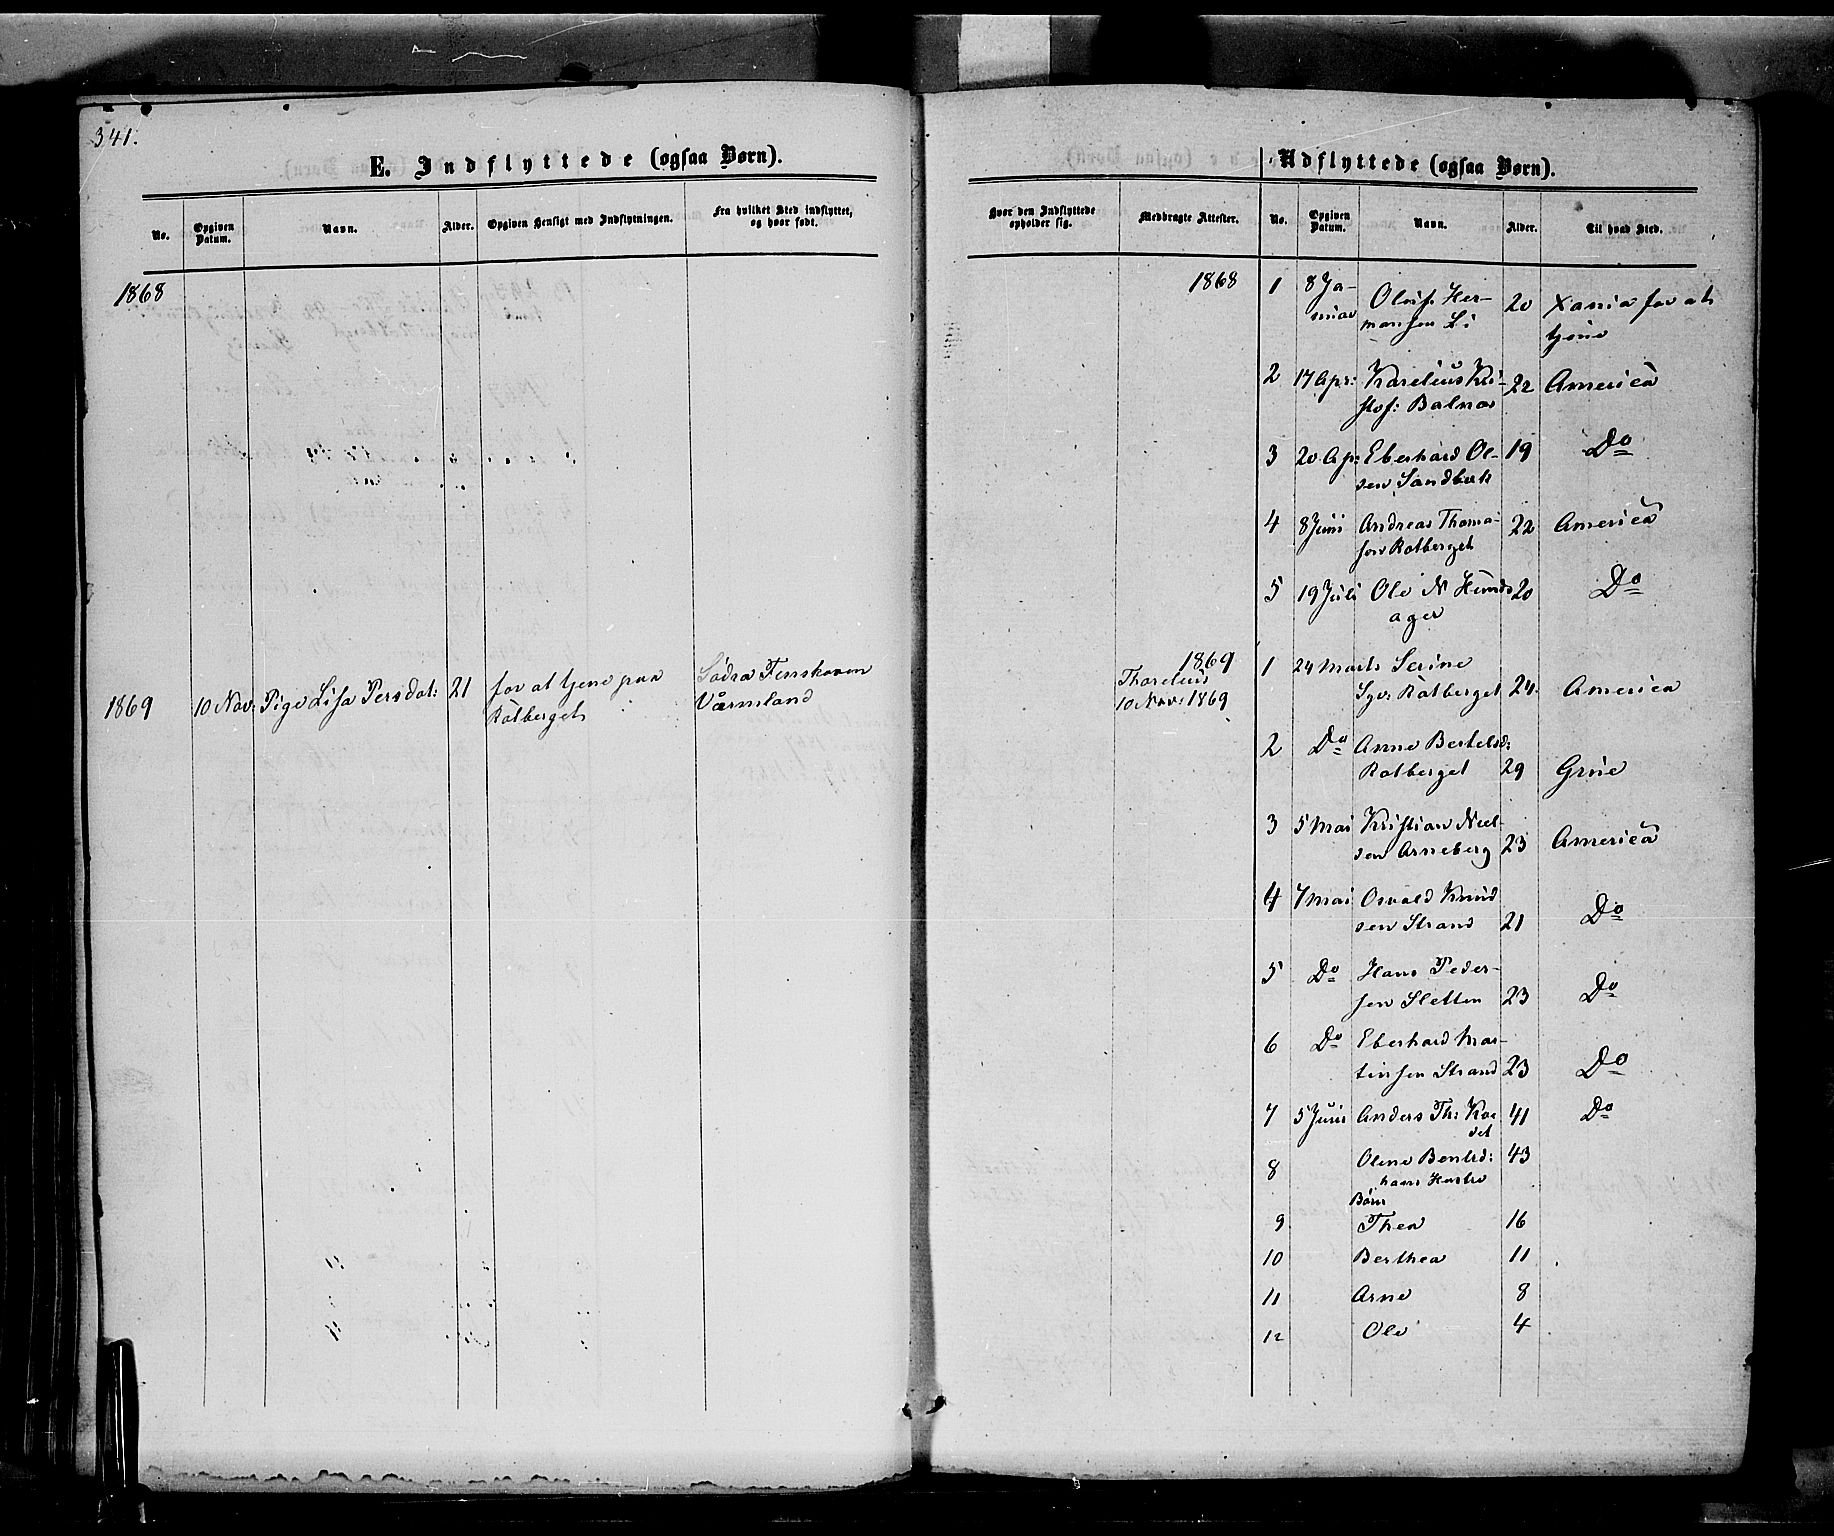 341.
E. Indflyttede (ogsaa Børn).
No. Opgiven Datum. Navn. Alder. Opgiven Hensigt med Indflytningen. Fra hvilket Sted indflyttet, og hvor født.
1868
1869 10 Nov: Pige Lisa Persdat: 21 for at tjene paa Södra Finskoven
Rotberget Värmland
Udflyttede (ogsaa Børn).
Hvor den Indflyttede opholder sig. Medbragte Attester. No. Opgiven Datum. Navn. Alder. Til hvad Sted.
1868 1 8 Ja- Oluf Her- 20 Xania for at
nuar mansen Li tjene
2 17 Apr: Karelius Kri- 22 America
stof: Balnes
3 20 Ap: Eberhard Ol- 19 Do
sen Sandbek
4 8 Juni Andreas Thoma- 22 America
sen Rotberget
5 19 Juli Ole N Hunds 20 Do
ager
1869 1 24 Marts Serine
Thorelius Syv: Rotberget 24 America
10 Nov: 1869
2 Do Anne Bertelsd:
Rotberget 29 Grue
3 5 Mai Kristian Niel-
sen Arneberg 23 America
4 7 Mai Osvald Knud
sen Strand 21 Do
5 Do Hans Peder-
sen Sletten 23 Do
6 Do Eberhard Mar-
tinsen Strand 23 Do
7 5 Juni Anders Th: 41 Do
8 Olene Bentsd: 43
hans Hustro
Børn
9 Thea 16
10 Berthea 11
11 Arne 8
12 Ole 4